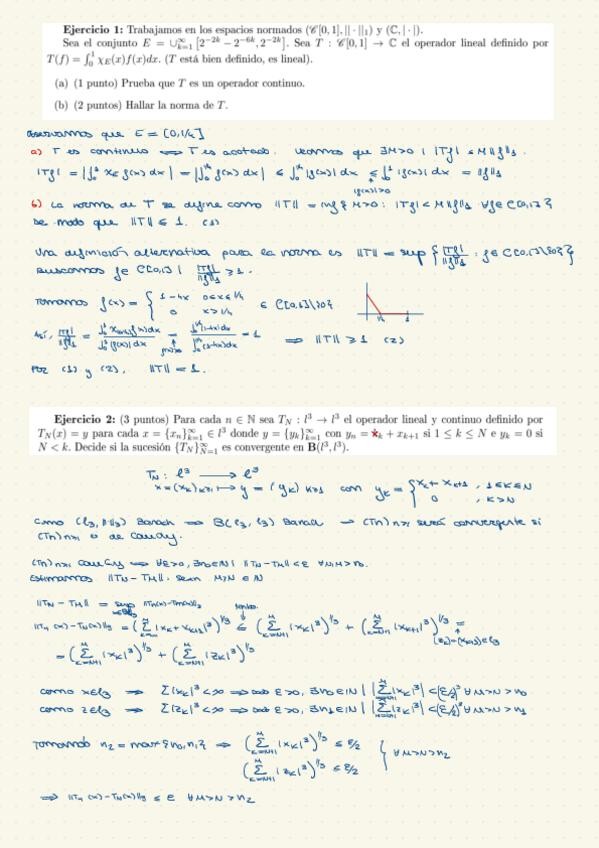 Ejercicio 1: Trabajamos en los espacios normados (𝒞[0,1], ||·||₁) y (ℂ, |·|).
Sea el conjunto E = ∪_{k=1}^∞ [2^{-2k} − 2^{-6k}, 2^{-2k}]. Sea T : 𝒞[0,1] → ℂ el operador lineal definido por
T(f) = ∫₀¹ χ_E(x)f(x)dx. (T está bien definido, es lineal).
(a) (1 punto) Prueba que T es un operador continuo.
(b) (2 puntos) Hallar la norma de T.
Observamos que E = [0,1/4]
a) T es continuo ⟺ T es acotado. Veamos que ∃M>0 | |Tf| ≤ M‖f‖₁.
|Tf| = |∫₀¹ χ_E f(x) dx| = |∫₀^{1/4} f(x) dx| ≤ ∫₀^{1/4} |f(x)| dx ≤ ∫₀¹ |f(x)| dx = ‖f‖₁
|f(x)|≥0
b) La norma de T se define como ‖T‖ = inf{M>0: |Tf| < M‖f‖₁ ∀f∈C[0,1]}
De modo que ‖T‖ ≤ 1. (1)
Una definición alternativa para la norma es ‖T‖ = sup{|Tf|/‖f‖₁ : f∈C[0,1]\{0}}
Buscamos f∈C[0,1] | |Tf|/‖f‖₁ ≥ 1.
Tomamos f(x) = { 1−4x 0≤x≤1/4
0 x>1/4 ∈ C[0,1]\{0}
1/4 1
Así, |Tf|/‖f‖₁ = = = 1 ⟹ ‖T‖ ≥ 1 (2)
Por (1) y (2), ‖T‖ = 1.
Ejercicio 2: (3 puntos) Para cada n ∈ ℕ sea T_N : l³ → l³ el operador lineal y continuo definido por
T_N(x) = y para cada x = {x_n}_{k=1}^∞ ∈ l³ donde y = {y_k}_{k=1}^∞ con y_n = x_k + x_{k+1} si 1 ≤ k ≤ N e y_k = 0 si
N < k. Decide si la sucesión {T_N}_{N=1}^∞ es convergente en B(l³, l³).
T_N : ℓ³ ⟶ ℓ³
x=(x_k)_{k≥1} ⟼ y=(y_k)_{k≥1} con y_k = { x_k + x_{k+1}, 1≤k≤N
0 , k>N
Como (ℓ₃,‖·‖₃) Banach ⟹ B(ℓ₃,ℓ₃) Banach ⟹ (Tn)n≥1 será convergente si
(Tn)n≥1 es de Cauchy.
(Tn)n≥1 Cauchy ⟺ ∀ε>0, ∃n₀∈ℕ | ‖T_N−T_M‖<ε ∀N,M>n₀.
Estimamos ‖T_N−T_M‖. Sean M>N∈ℕ
‖T_N−T_M‖ = sup ‖T_N(x)−T_M(x)‖₃
‖T_M(x)−T_N(x)‖₃ = (∑ |x_k+x_{k+1}|³)^{1/3} ≤ (∑_{k=N+1}^M |x_k|³)^{1/3} + (∑_{k=N+1}^M |x_{k+1}|³)^{1/3} =
(z_k)=(x_{k+1})∈ℓ₃
= (∑_{k=N+1}^M |x_k|³)^{1/3} + (∑_{k=N+1}^M |z_k|³)^{1/3}
Como x∈ℓ₃ ⟹ ∑|x_k|³ < ∞ ⟹ dado ε>0, ∃n₀∈ℕ | |∑_{k=N+1}^M |x_k|³| < (ε/2)³ ∀M>N>n₀
Como z∈ℓ₃ ⟹ ∑|z_k|³ < ∞ ⟹ dado ε>0, ∃n₁∈ℕ | |∑_{k=N+1}^M |z_k|³| < (ε/2)³ ∀M>N>n₁
Tomando n₂ = max{n₀,n₁} ⟹ (∑_{k=N+1}^M |x_k|³)^{1/3} ≤ ε/2
(∑_{k=N+1}^M |z_k|³)^{1/3} ≤ ε/2 } ∀M>N>n₂
⟹ ‖T_M(x)−T_N(x)‖₃ ≤ ε ∀M>N>n₂